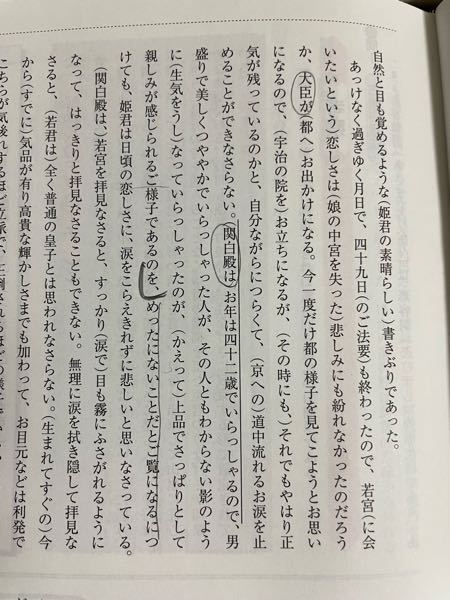 自然と目も覚めるような(姫君の素晴らしい)書きぶりであった。
あっけなく過ぎゆく月日で、四十九日(のご法要)も終わったので、若宮(に会
いたいという)恋しさは(娘の中宮を失った)悲しみにも紛れなかったのだろう
か、大臣が(都へ)お出かけになる。今一度だけ都の様子を見てこようとお思い
になるので、(宇治の院を)お立ちになるが、(その時にも、)それでもやはり正
気が残っているのかと、自分ながらにつらくて、(京への)道中流れるお涙を止
めることができなさらない。(関白殿は)お年は四十二歳でいらっしゃるので、男
盛りで美しくつややかでいらっしゃった人が、その人ともわからない影のよう
に(生気をうし)なっていらっしゃったのが、(かえって)上品でさっぱりとして
親しみが感じられるご様子であるのを、めったにないことだとご覧になるにつ
けても、姫君は日頃の恋しさに、涙をこらえきれずに悲しいと思いなさっている。
(関白殿は、)若宮を拝見なさると、すっかり(涙で)目も霧にふさがれるように
なって、はっきりと拝見なさることもできない。無理に涙を拭き隠して拝見な
さると、(若君は)全く普通の皇子とは思われなさらない。(生まれてすぐの)今
から(すでに)気品が有り高貴な輝かしさまでも加わって、お目元などは利発で
こちらが気後れするほど立派で、